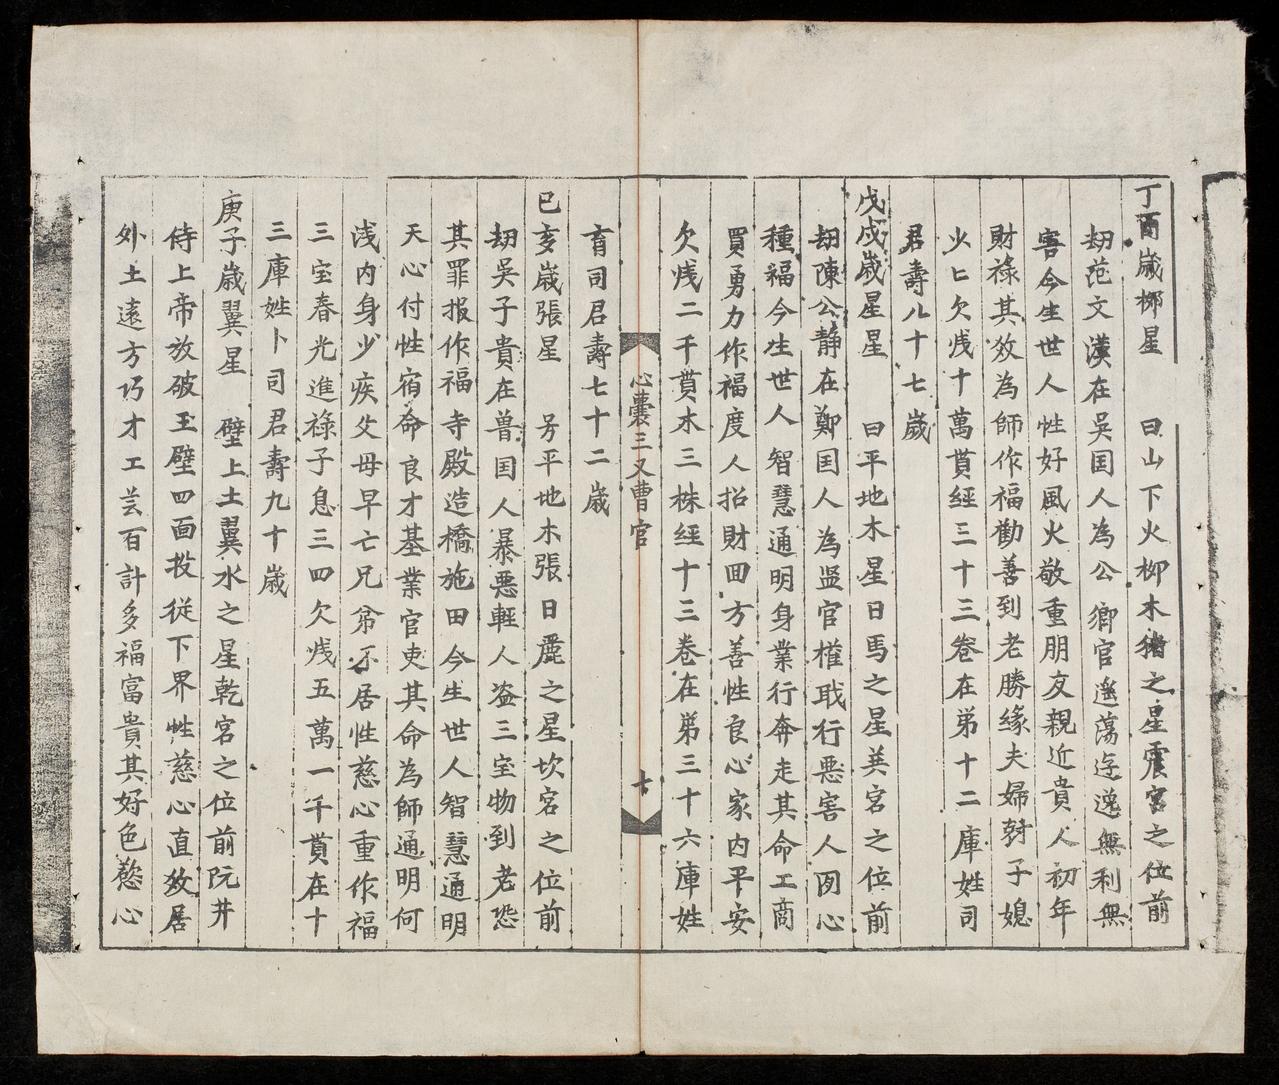 丁酉歲栁星　曰山下火栁木獐之星震宮之位前
刼范文漢在吳囯人為公卿官遥蕩逰逸無利無
害今生世人性好風火敬重朋友親近貴人初年
財禄其效為師作福勸善到老勝緣夫婦對子媳
少亡欠浅十萬貫經三十三卷在弟十二庫姓司
君壽八十七歲
戊戌歲星星　曰平地木星日馬之星巽宮之位前
刼陳公靜在鄭囯人為㿽官權戢行惡害人囬心
種福今生世人智慧通明身業行奔走其命工商
買勇力作福度人招財四方善性良心家内平安
欠浅二千貫木三株經十三卷在弟三十六庫姓
育司君壽七十二歲
心囊三又曹官
七
己亥歲張星　另平地木張日麗之星坎宮之位前
刼吳子貴在魯囯人暴惡輕人盗三宝物到老恐
其罪报作福寺殿造橋施田今生世人智慧通明
天心付性宿命良才基業官吏其命為師通明何
浅内身少疾父母早亡兄弟不居性慈心重作福
三宝春光進禄子息三四欠浅五萬一千貫在十
三庫姓卜司君壽九十歲
庚子歲翼星　壁上土翼水之星乾宮之位前阮井
侍上帝放破玉壁四面投從下界性慈心直效居
外土遠方巧才工芸百計多福富貴其好色慾心